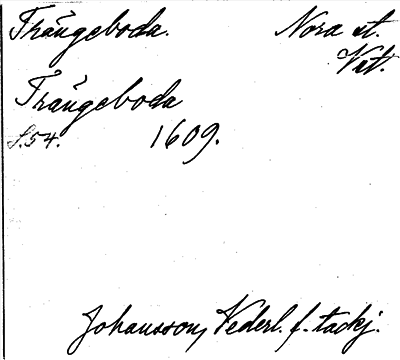 Trångeboda. Nora st.
Vät.
Trångeboda
s. 54. 1609.
Johansson, Vederl. f. tackj.